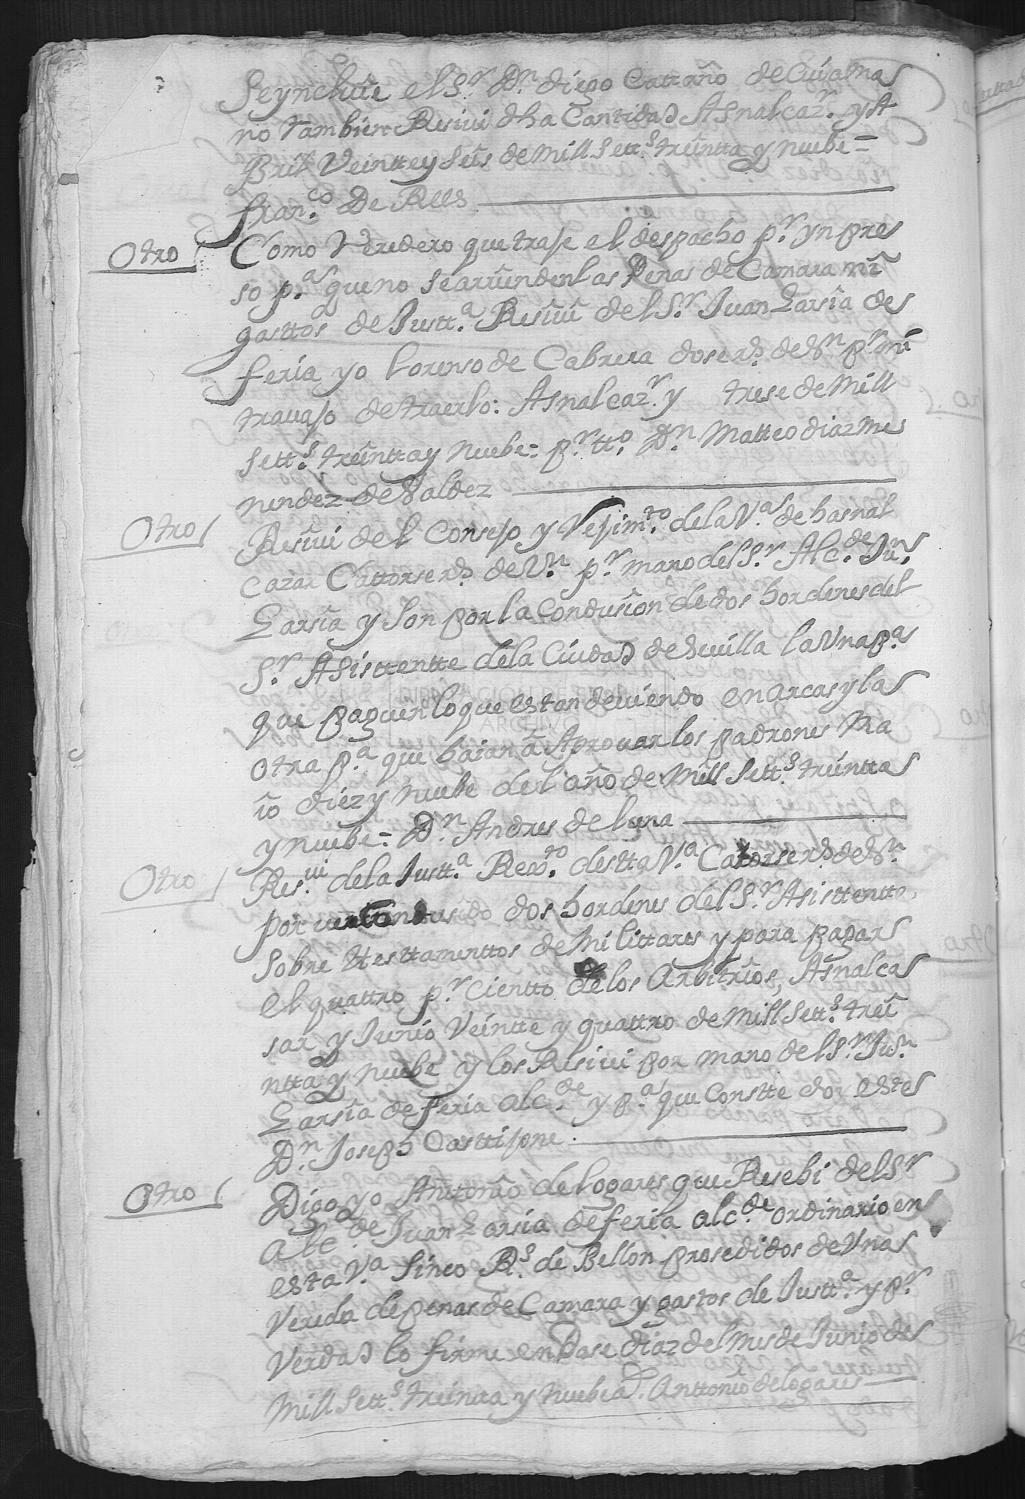 Se ynclue el Sr. Dn. diego Cattaño de Cuia mas
no tambien Resivi dha Cantidad Asnalcazr. y A
Bril Veintte y seis de Mill Setts. treintta y nuebe =
franco. De Rees
Otro Como Veredero que traje el despacho pr. ynpres
so pa. que no se arrienden las Penas de Camara ni
gasttos de Justta. Resivi del Sr. Juan Garsia des
feria yo Lorenso de Cabrera dose rs. de Vn. pr. mi
travajo de traerlo: Asnalcazr. y trese de Mill
Setts. treintta y Nuebe = pr. tto. Dn. Matteo diaz Me
nendez de Valdez
Otro Resivi del Consejo y Rejimto. de la Va. de hasnal
cazar Cattorse rs. de Vn. pr. mano del Sr. Alcde. Jun.
Garsia y son por la Condusion de dos hordenes del
Sr. Asisttentte de la Ciudad de Sevilla la Una pa.
que paguen lo que estan deviendo en Arcas y las
otra pa. que haian a Aprovar los padrones Ma
io diez y Nuebe del año de Mill Setts. treintta
y nuebe = Dn. Andres de luna
Otro Resivi de la Justta. Rexto. destta Va. Catorse rs. de Vn.
por dos hordenes del Sr. Asisttentte
Sobre Aesttamenttos de Milittares y para pagar
el quattro pr. Cientto de los Arbitrios, Asnalcas
sar y Junio Veintte y quattro de Mill Setts. trei
ntta y nuebe y los Resivi por mano del Sr. Jun.
Garsia de feria alcde. y pa. que Constte doy estes
Dn. Joseph Casttijone
Otro Digo yo Anttonio de logares que Resebi del Sr
Alcde. Juan Garsia de feria alcde. ordinario en
esta Va. Sinco Rs. de Bellon prosedidos de Unas
Vereda de penas de Camara y gastos de Justta. y pr.
Verdad lo firme en Dose diaz del Mes de Junio des
Mill Setts. treintta y Nuebe as. Anttonio de logares